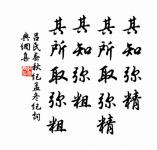 其知弥精
其所取弥精
其知弥粗
其所取弥粗
吕氏春秋纪孟冬纪詞
典網喜